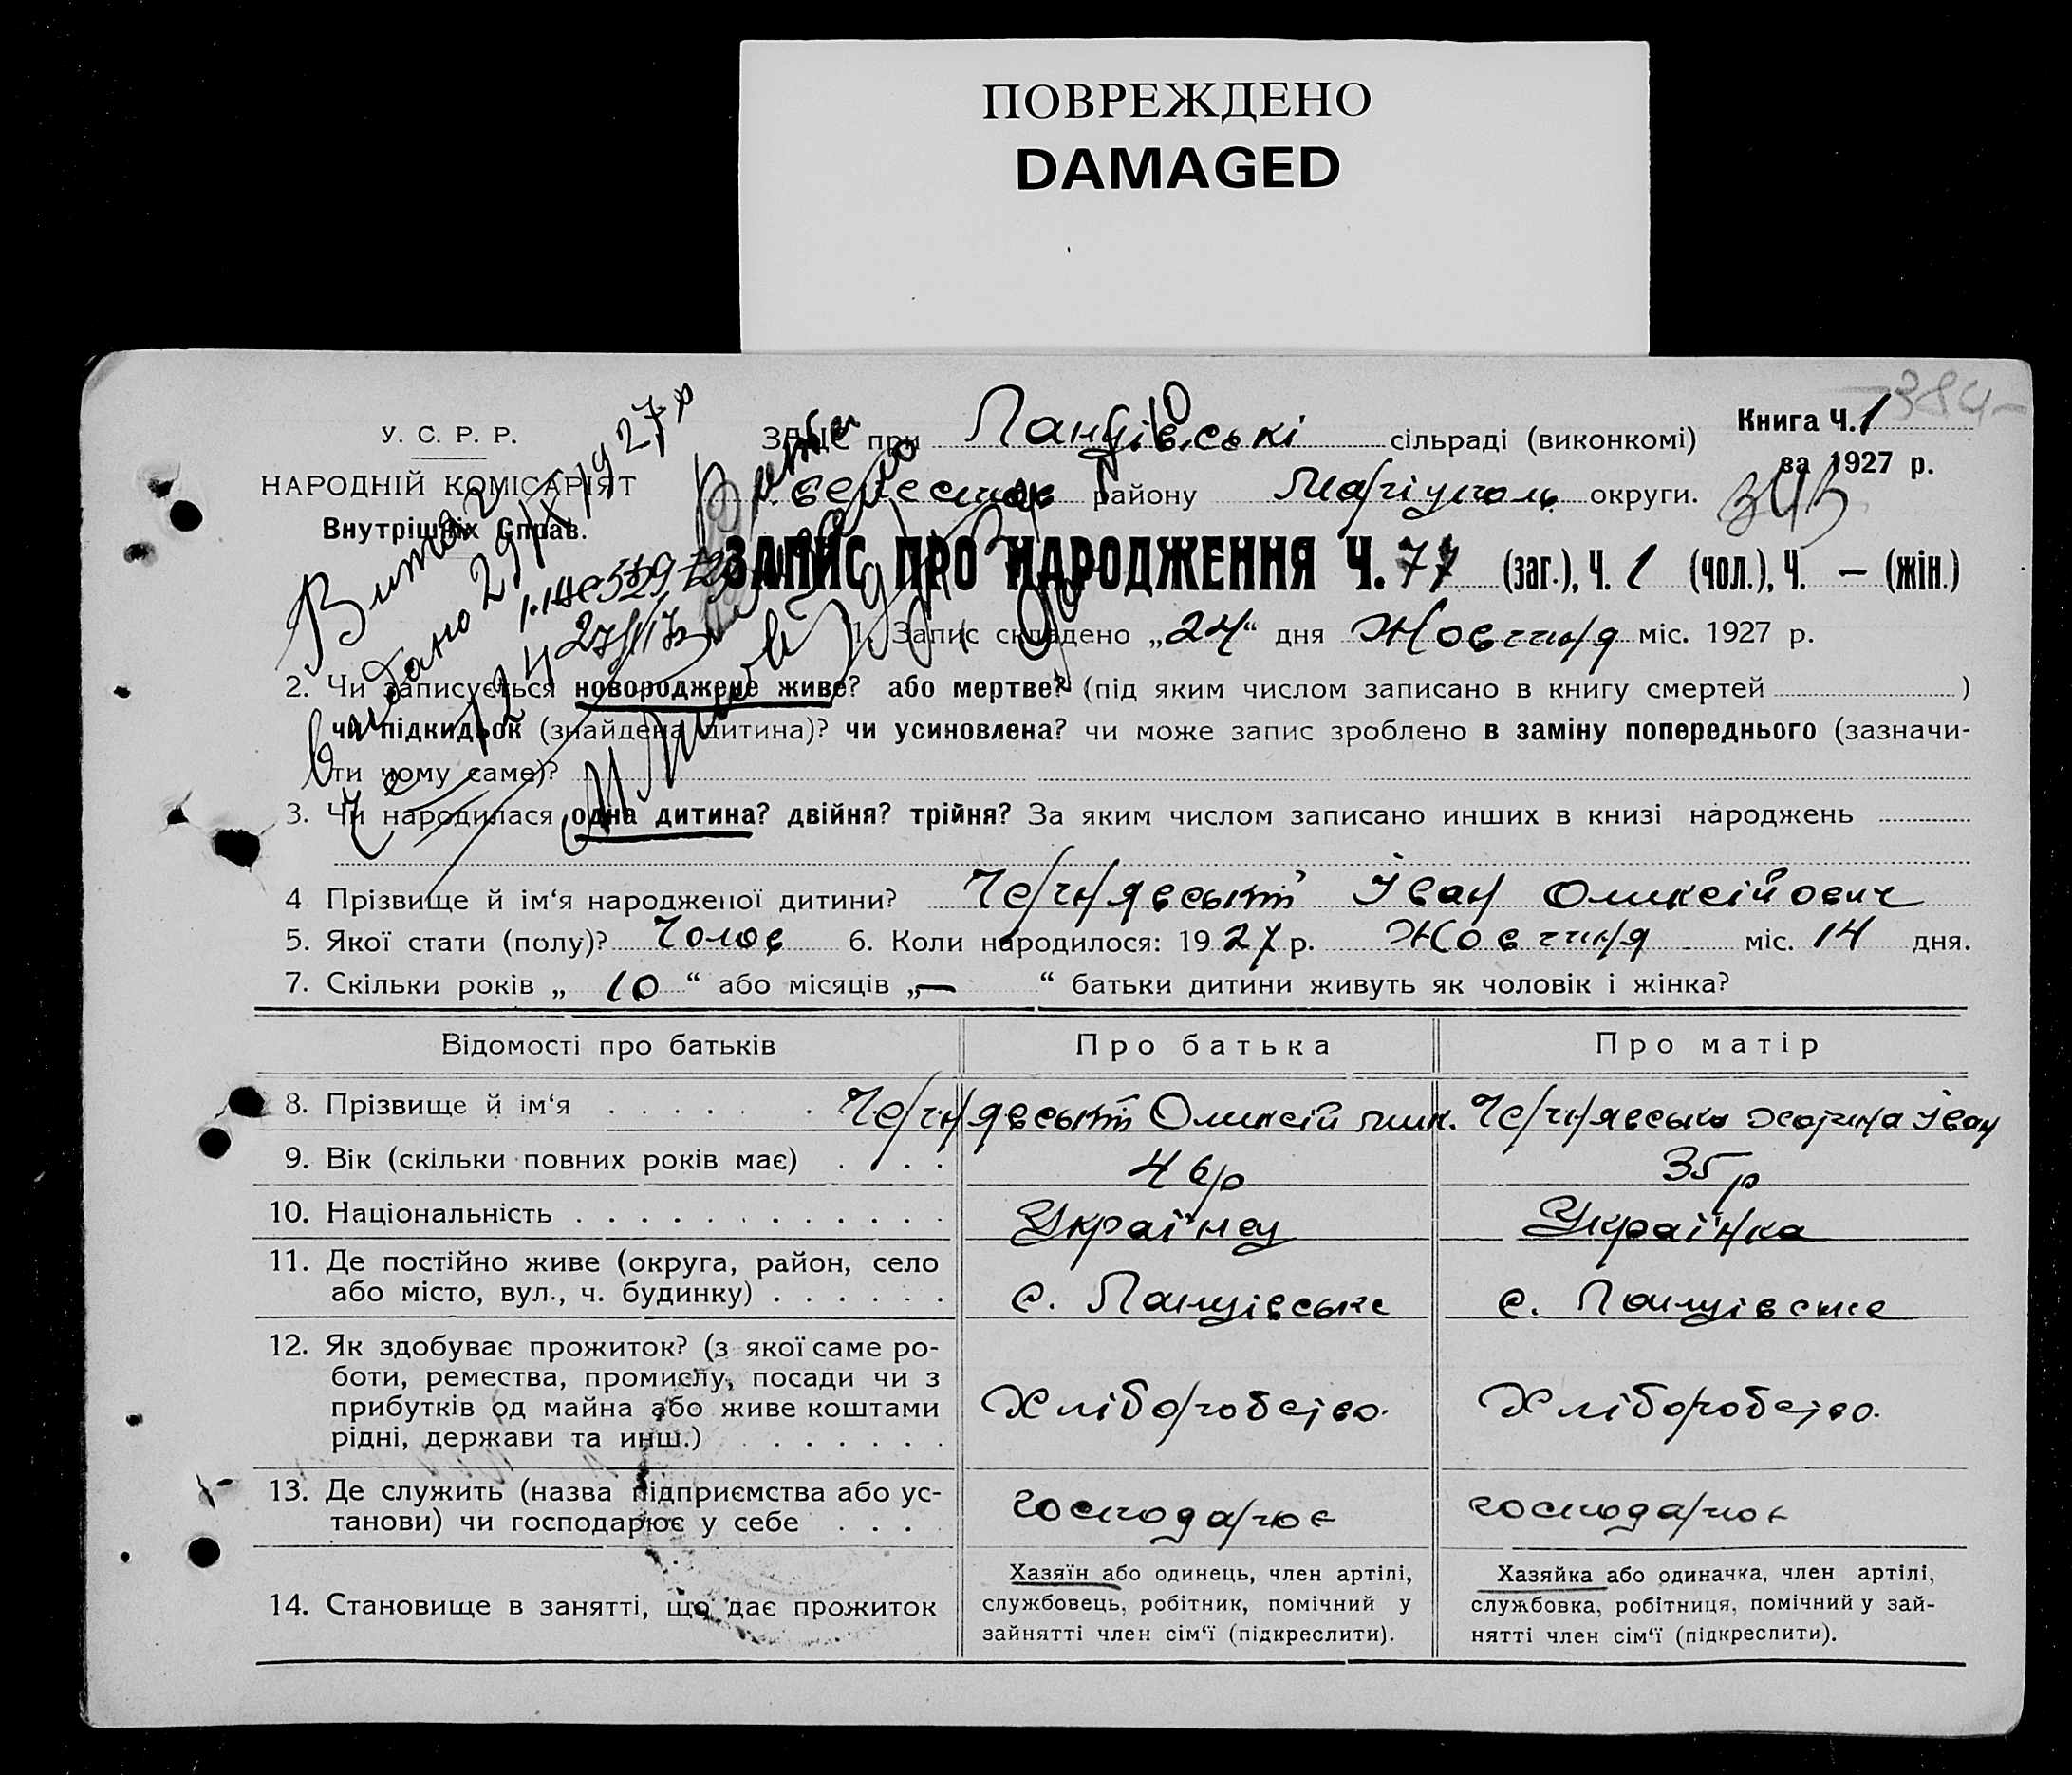 ПОВРЕЖДЕНО
DAMAGED
384
У. С. Р. Р.
НАРОДНІЙ КОМІСАРІЯТ
Внутрішніх Справ.
ЗАГС при Ланцівські сільраді (виконкомі)
Книга Ч. 1
за 1927 р.
району Маріуполь округи.
343
ЗАПИС ПРО НАРОДЖЕННЯ Ч. 77 (заг.), Ч. 1 (чол.), Ч. — (жін.)
Витяг
видано 29/X 1927 р
1. Запис складено „24“ дня Жовтня міс. 1927 р.
2. Чи записується новороджене живе? або мертве? (під яким числом записано в книгу смертей )
чи підкидьок (знайдена дитина)? чи усиновлена? чи може запис зроблено в заміну попереднього (зазначи-
ти чому саме)?
3. Чи народилася одна дитина? двійня? трійня? За яким числом записано инших в книзі народжень
4 Прізвище й ім‘я народженої дитини? Чернявський Іван Оликсійович
5. Якої стати (полу)? Чолов 6. Коли народилося: 1927 р. Жовтня міс. 14 дня.
7. Скільки років „ 10 “ або місяців „—“ батьки дитини живуть як чоловік і жінка?
Відомості про батьків Про батька Про матір
8. Прізвище й ім‘я Чернявський Оликсій Чернявська Іван
9. Вік (скільки повних років має) 46 р 35 р
10. Національність Українец Українка
11. Де постійно живе (округа, район, село
або місто, вул., ч. будинку) с. Ланцівське с. Ланцівське
12. Як здобуває прожиток? (з якої саме ро-
боти, ремества, промислу, посади чи з
прибутків од майна або живе коштами
рідні, держави та инш.) Хліборобство. Хліборобство.
13. Де служить (назва підприємства або ус-
танови) чи господарює у себе господарює господарює
14. Становище в занятті, що дає прожиток
Хазяїн або одинець, член артілі,
службовець, робітник, помічний у
зайнятті член сім‘ї (підкреслити).
Хазяйка або одиначка, член артілі,
службовка, робітниця, помічний у зай-
нятті член сім‘ї (підкреслити).